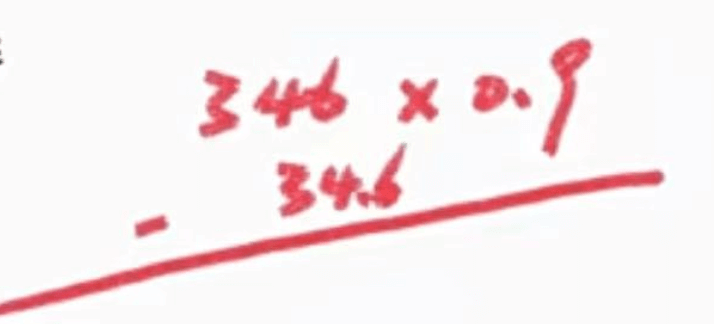 346 × 0.9
- 34.6